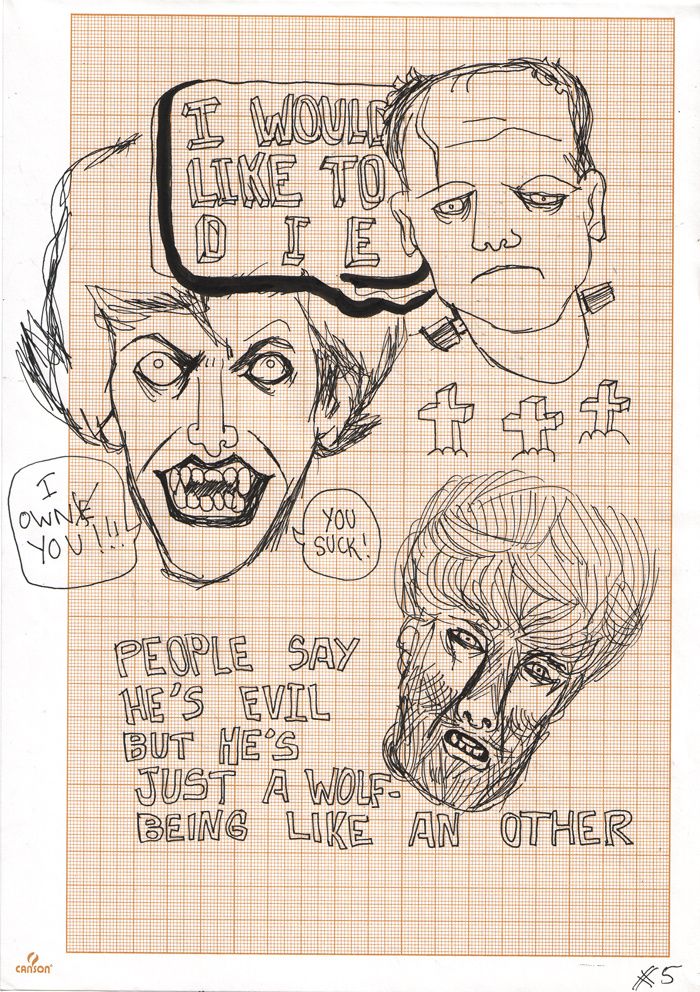 I WOULD
LIKE TO
DIE
I
OWN
YOU!!!
YOU
SUCK!
PEOPLE SAY
HE'S EVIL
BUT HE'S
JUST A WOLF-
BEING LIKE AN OTHER
CANSON
5